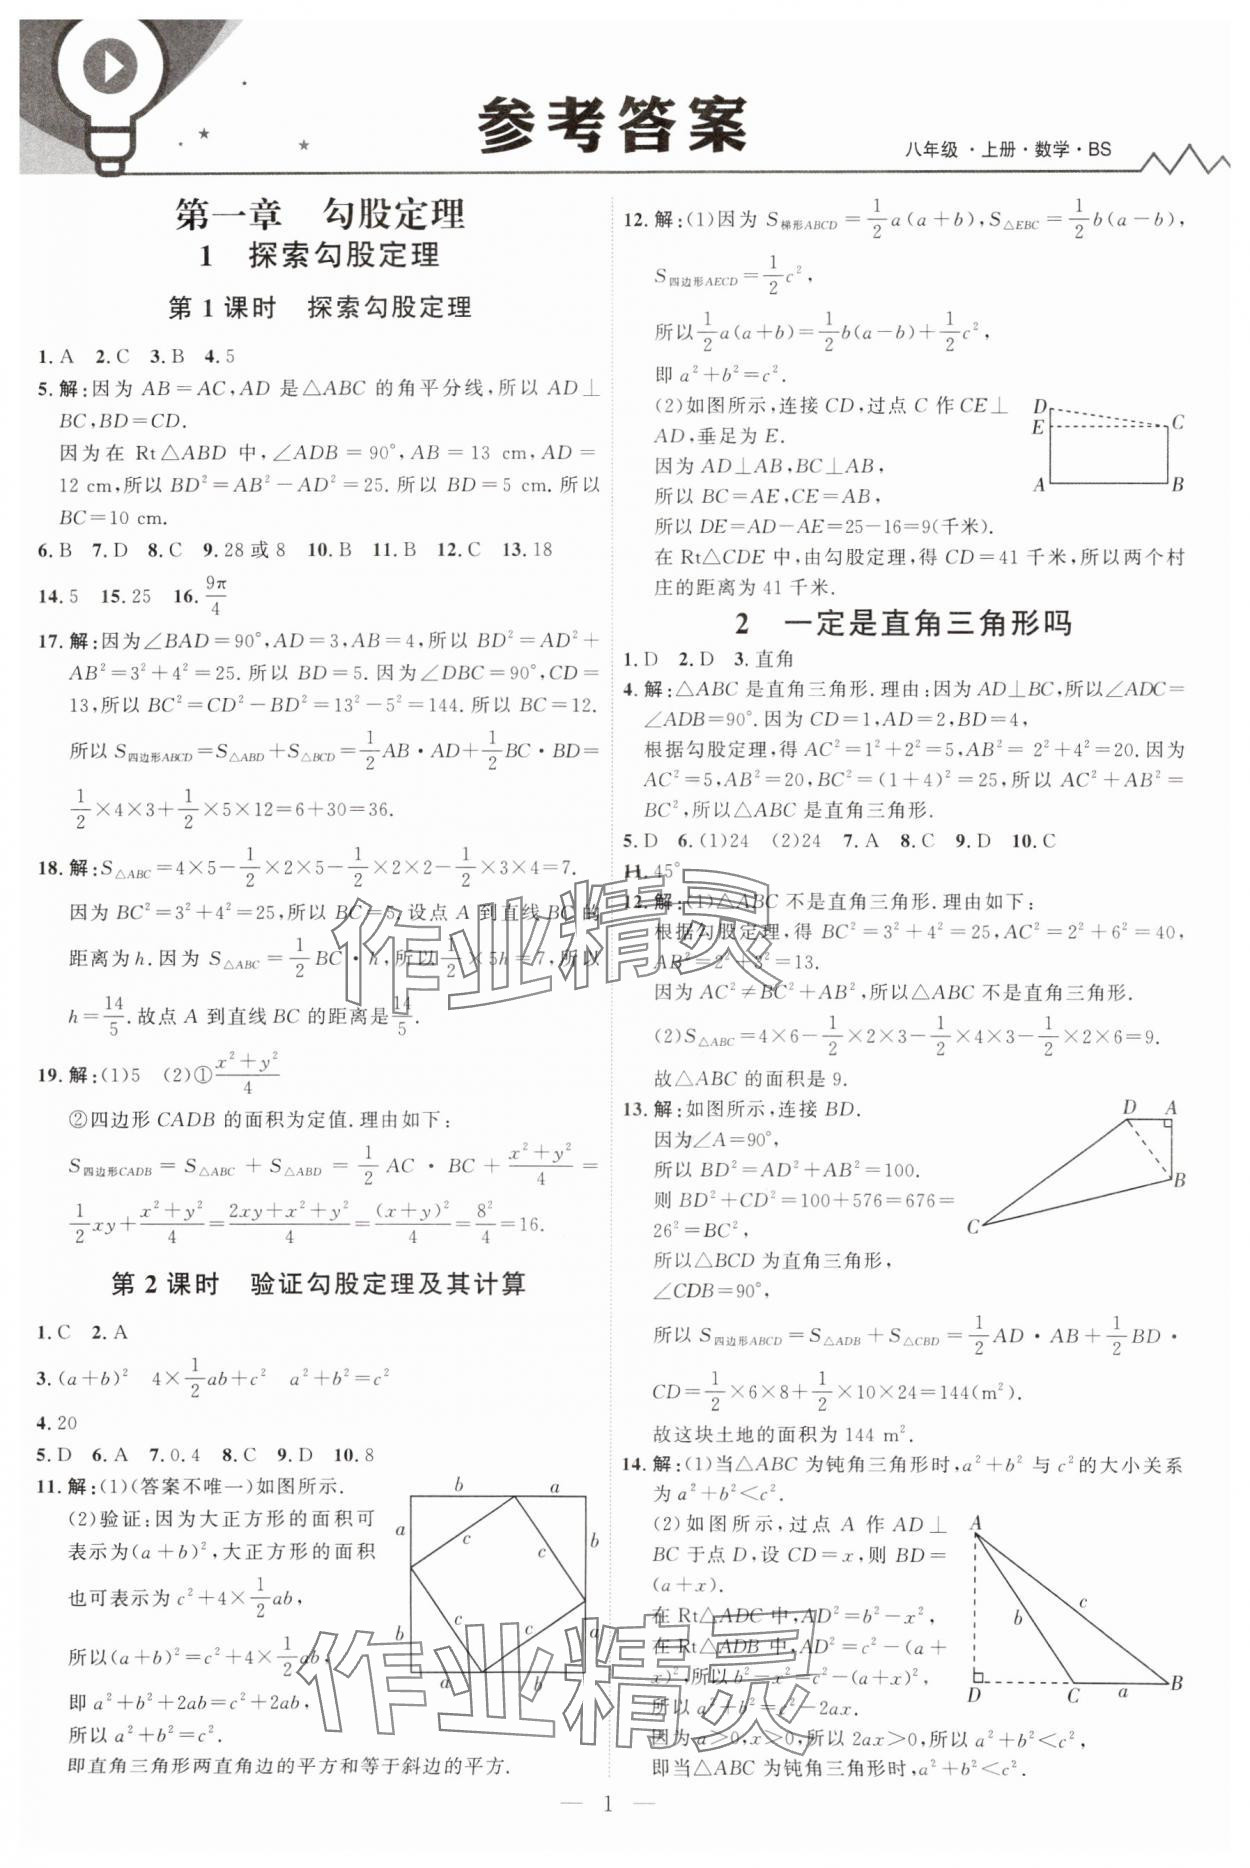 参考答案
八年级·上册·数学·BS
第一章 勾股定理
1 探索勾股定理
第1课时 探索勾股定理
1.A 2.C 3.B 4.5
5.解:因为AB=AC,AD是△ABC的角平分线,所以AD⊥
BC,BD=CD.
因为在Rt△ABD中,∠ADB=90°,AB=13 cm,AD=
12 cm,所以BD²=AB²-AD²=25.所以BD=5 cm.所以
BC=10 cm.
6.B 7.D 8.C 9.28或8 10.B 11.B 12.C 13.18
14.5 15.25 16.9π/4
17.解:因为∠BAD=90°,AD=3,AB=4,所以BD²=AD²+
AB²=3²+4²=25.所以BD=5.因为∠DBC=90°,CD=
13,所以BC²=CD²-BD²=13²-5²=144.所以BC=12.
所以S四边形ABCD=S△ABD+S△BCD=1/2AB·AD+1/2BC·BD=
1/2×4×3+1/2×5×12=6+30=36.
18.解:S△ABC=4×5-1/2×2×5-1/2×2×2-1/2×3×4=7.
因为BC²=3²+4²=25,所以BC=5.设点A到直线BC的
距离为h.因为S△ABC=1/2BC·h,所以1/2×5h=7,所以
h=14/5.故点A到直线BC的距离是14/5.
19.解:(1)5 (2)①(x²+y²)/4
②四边形CADB的面积为定值.理由如下:
S四边形CADB=S△ABC+S△ABD=1/2AC·BC+(x²+y²)/4=
1/2xy+(x²+y²)/4=(2xy+x²+y²)/4=(x+y)²/4=8²/4=16.
第2课时 验证勾股定理及其计算
1.C 2.A
3.(a+b)² 4×1/2ab+c² a²+b²=c²
4.20
5.D 6.A 7.0.4 8.C 9.D 10.8
11.解:(1)(答案不唯一)如图所示.
(2)验证:因为大正方形的面积可
表示为(a+b)²,大正方形的面积
也可表示为c²+4×1/2ab,
所以(a+b)²=c²+4×1/2ab,
即a²+b²+2ab=c²+2ab,
所以a²+b²=c².
即直角三角形两直角边的平方和等于斜边的平方.
b a
a b
c c
c c
b a
a b
12.解:(1)因为S梯形ABCD=1/2a(a+b),S△EBC=1/2b(a-b),
S四边形AECD=1/2c²,
所以1/2a(a+b)=1/2b(a-b)+1/2c²,
即a²+b²=c².
(2)如图所示,连接CD,过点C作CE⊥
AD,垂足为E.
因为AD⊥AB,BC⊥AB,
所以BC=AE,CE=AB,
所以DE=AD-AE=25-16=9(千米).
在Rt△CDE中,由勾股定理,得CD=41千米,所以两个村
庄的距离为41千米.
D
E C
A B
2 一定是直角三角形吗
1.D 2.D 3.直角
4.解:△ABC是直角三角形.理由:因为AD⊥BC,所以∠ADC=
∠ADB=90°.因为CD=1,AD=2,BD=4,
根据勾股定理,得AC²=1²+2²=5,AB²=2²+4²=20.因为
AC²=5,AB²=20,BC²=(1+4)²=25,所以AC²+AB²=
BC²,所以△ABC是直角三角形.
5.D 6.(1)24 (2)24 7.A 8.C 9.D 10.C
11.45°
12.解:(1)△ABC不是直角三角形.理由如下:
根据勾股定理,得BC²=3²+4²=25,AC²=2²+6²=40,
AB²=2²+3²=13.
因为AC²≠BC²+AB²,所以△ABC不是直角三角形.
(2)S△ABC=4×6-1/2×2×3-1/2×4×3-1/2×2×6=9.
故△ABC的面积是9.
13.解:如图所示,连接BD.
因为∠A=90°,
所以BD²=AD²+AB²=100.
则BD²+CD²=100+576=676=
26²=BC²,
所以△BCD为直角三角形,
∠CDB=90°,
所以S四边形ABCD=S△ADB+S△CBD=1/2AD·AB+1/2BD·
CD=1/2×6×8+1/2×10×24=144(m²).
故这块土地的面积为144 m².
D A
B
C
14.解:(1)当△ABC为钝角三角形时,a²+b²与c²的大小关系
为a²+b²<c².
(2)如图所示,过点A作AD⊥
BC于点D,设CD=x,则BD=
(a+x).
在Rt△ADC中,AD²=b²-x²,
在Rt△ADB中,AD²=c²-(a+
x)²,所以b²-x²=c²-(a+x)²,
所以a²+b²=c²-2ax.
因为a>0,x>0,所以2ax>0,所以a²+b²<c².
即当△ABC为钝角三角形时,a²+b²<c².
A
b c
D C a B
作业精灵
作业精灵
— 1 —